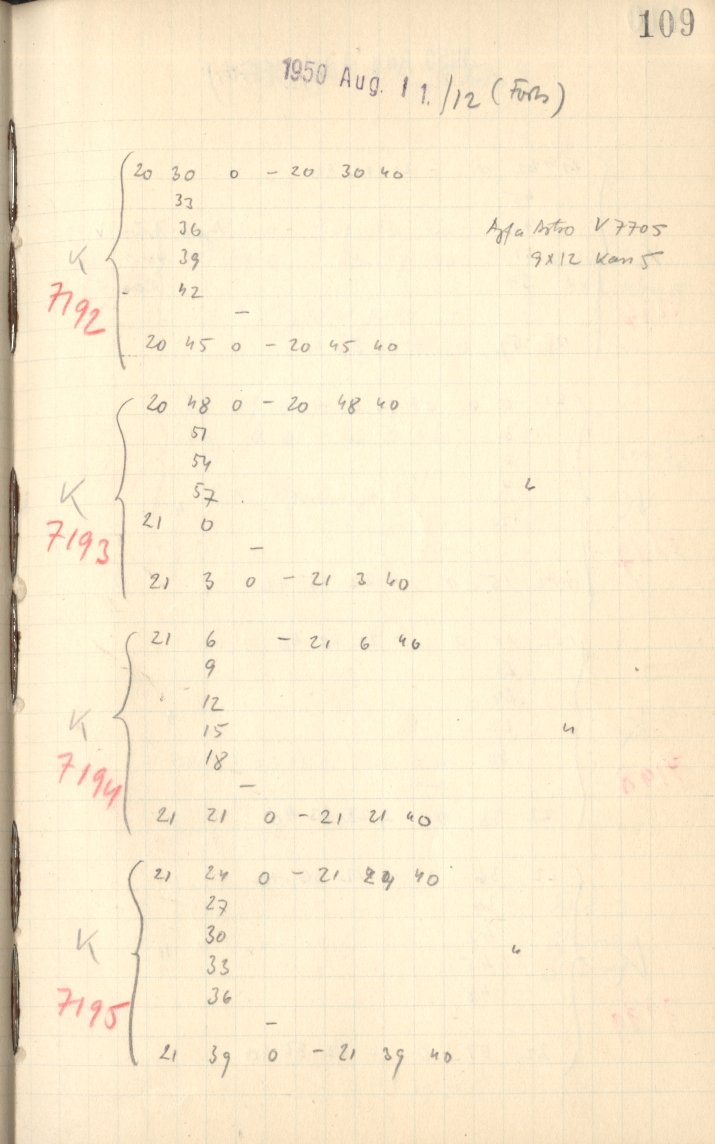 109
1950 Aug. 11./12 (Forts)
20 30 0 - 20 30 40
33
36 Agfa Astro V 7705
K 39 9x12 Kan 5
7192 42
-
20 45 0 - 20 45 40
20 48 0 - 20 48 40
51
54
K 57 "
7193 21 0
-
21 3 0 - 21 3 40
21 6 - 21 6 40
9
12
K 15 "
7194 18
-
21 21 0 - 21 21 40
21 24 0 - 21 24 40
27
K 30
33 "
7195 36
-
21 39 0 - 21 39 40